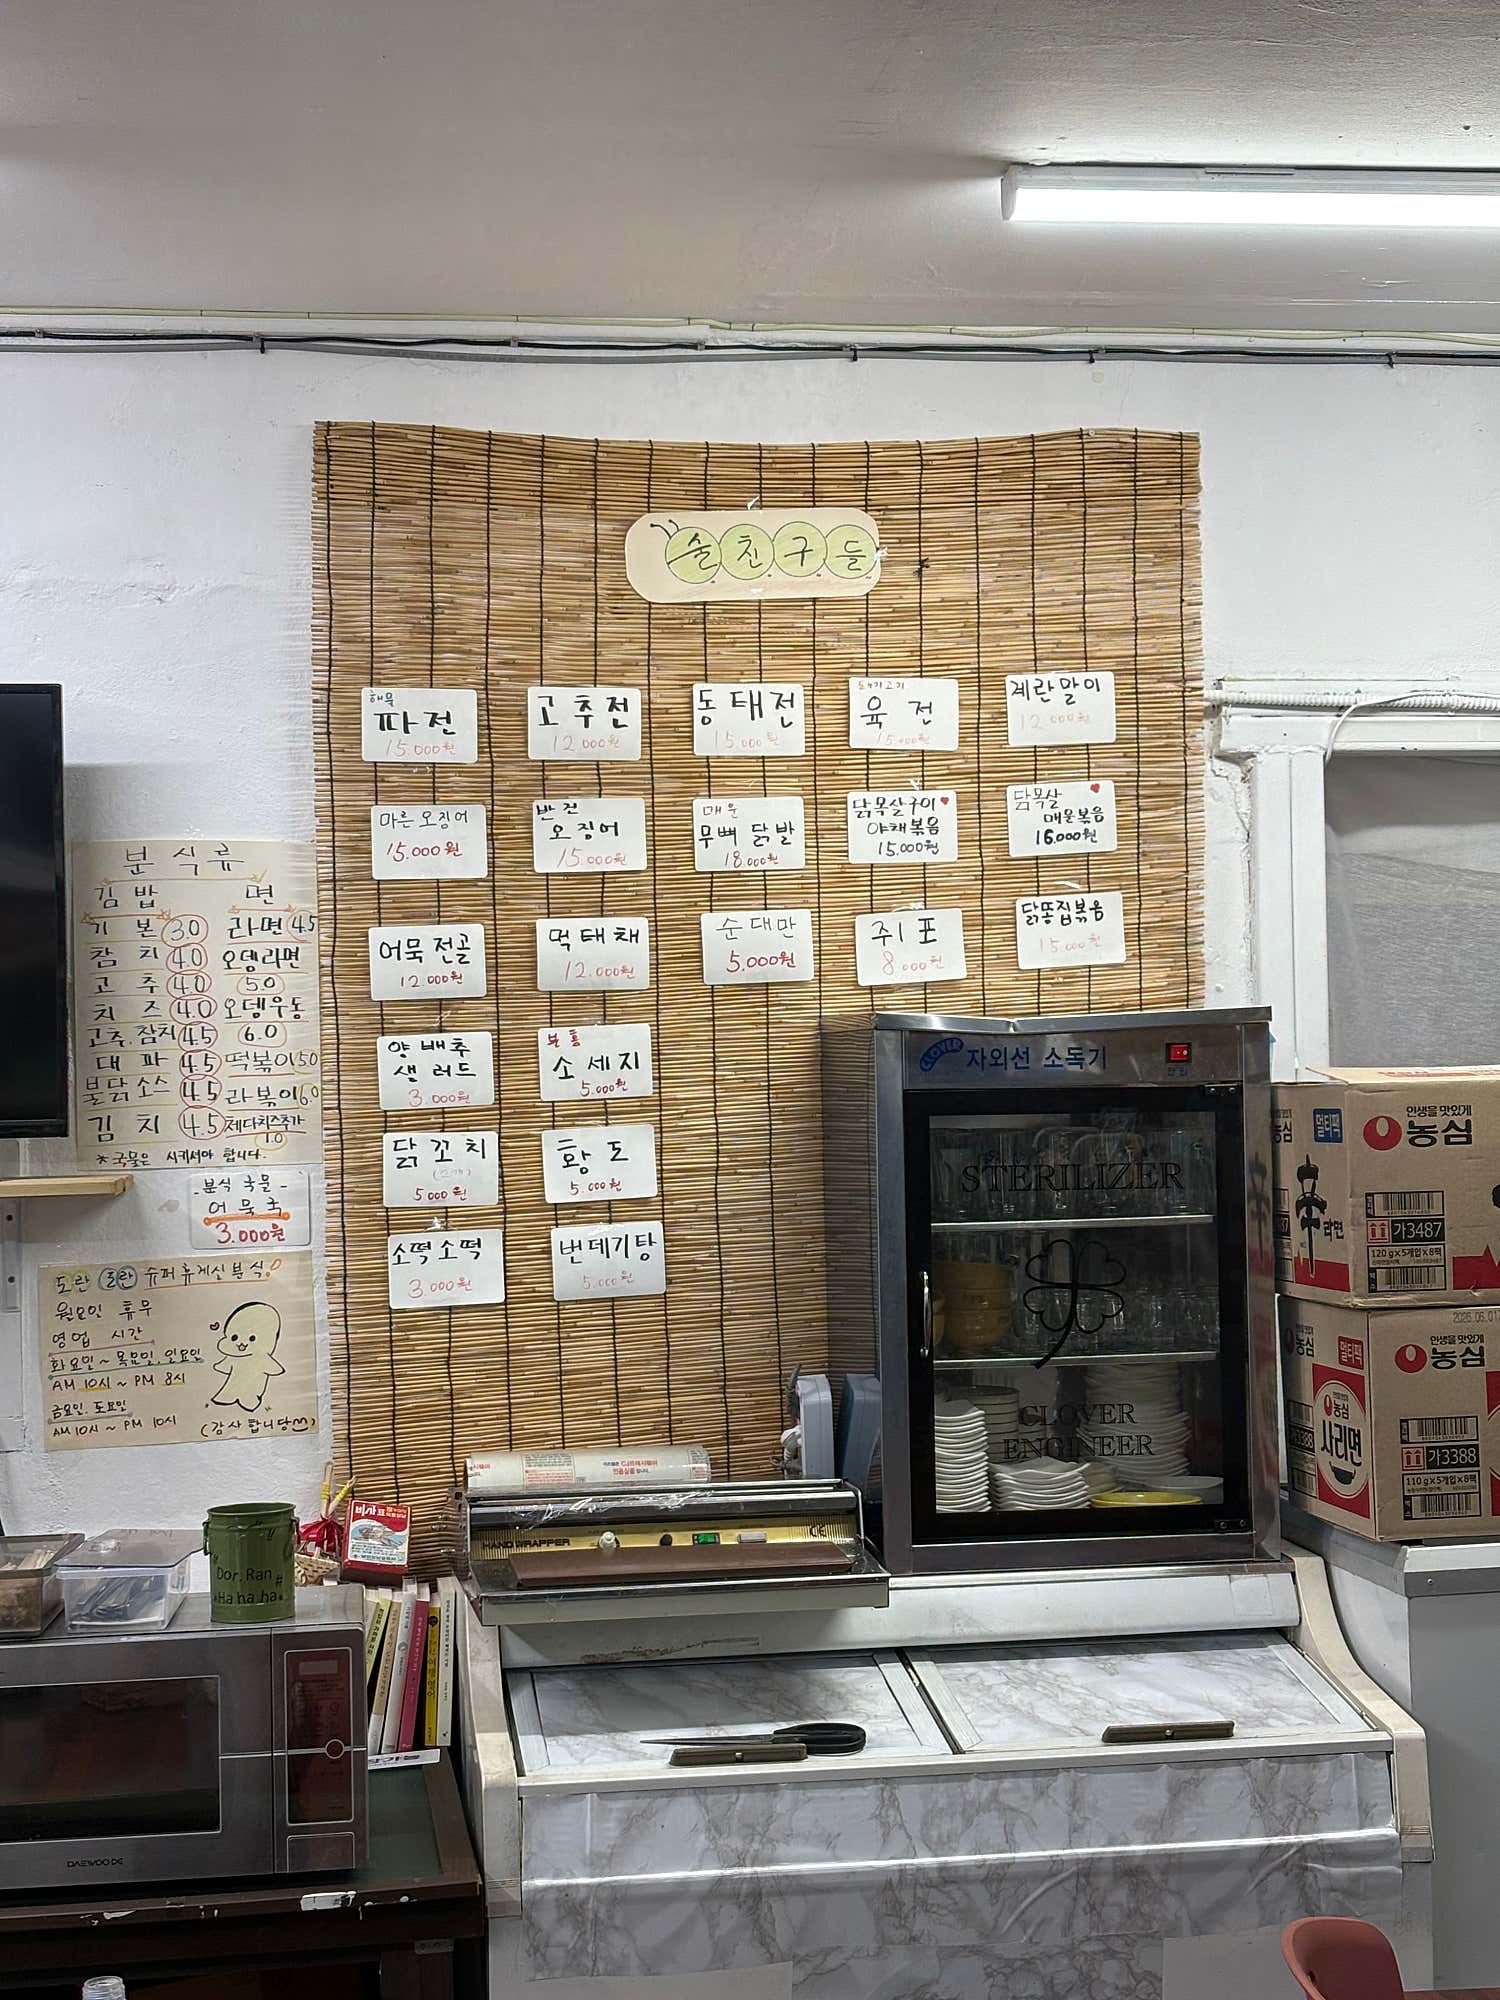 술친구들
해물
파전
15.000원
고추전
12.000원
동태전
15.000원
육전
15.000원
계란말이
12.000원
마른오징어
15.000원
반건
오징어
15.000원
매운
무뼈닭발
18.000원
닭목살구이
야채볶음
15.000원
닭목살
매운볶음
16.000원
어묵전골
12.000원
먹태채
12.000원
순대만
5.000원
쥐포
8.000원
닭똥집볶음
15.000원
양배추
샐러드
3.000원
분홍
소세지
5.000원
닭꼬치
5.000원
황도
5.000원
소떡소떡
3.000원
번데기탕
5.000원
분식류
김밥 면
기본 3.0 라면 4.5
참치 4.0 오뎅라면
고추 4.0 5.0
치즈 4.0 오뎅우동
고추.참치 4.5 6.0
대파 4.5 떡볶이 5.0
불닭소스 4.5 라볶이 6.0
김치 4.5 제다치즈추가
1.0
*국물은 시키셔야 합니다.
-분식 국물-
어묵국
3.000원
도란 도란 슈퍼휴게실분식!
월요일 휴무
영업 시간
화요일~목요일.일요일
AM 10시~PM 8시
금요일.토요일
AM 10시~PM 10시
(감사합니당^^)
CLOVER 자외선 소독기
STERILIZER
CLOVER
ENGINEER
멀티팩
인생을 맛있게
농심
辛라면
가3487
120g×5개입×8팩
2026.06.01
농심
멀티팩
인생을 맛있게
농심
농심
사리면
가3388
110g×5개입×8팩
HAND WRAPPER
비사표
Dor.Ran
"Ha ha ha"
DAEWOO